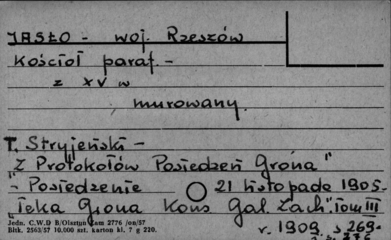 JASŁO - woj. Rzeszów
Kościół paraf. -
z XV w
murowany.
T. Stryjeński -
"Z Protokołów Posiedzeń Grona"
- Posiedzenie 21 listopada 1905.
"Teka Grona Kons Gal. Zach". Tom III
r. 1909. s 269-
Jedn. C.W.D B/Olsztyn Zam 2776 /on/57
Bltk. 2563/57 10.000 szt. karton kl. 7 g 220.